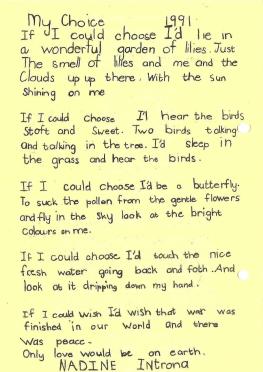 My Choice 1991.
If I could choose I'd lie in
a wonderful garden of lilies. Just
The smell of lilies and me and the
Clouds up up there. With the sun
Shining on me
If I could choose I'll hear the birds
Stoft and Sweet. Two birds talking
and talking in the tree. I'd sleep in
the grass and hear the birds.
If I could choose I'd be a butterfly.
To suck the pollen from the gentle flowers
and fly in the Sky look at the bright
Colours on me.
If I could choose I'd touch the nice
fresh water going back and foth. And
look at it dripping down my hand.
If I could wish I'd wish that war was
finished in our World and there
Was peace.
Only love would be on earth.
NADINE Introna